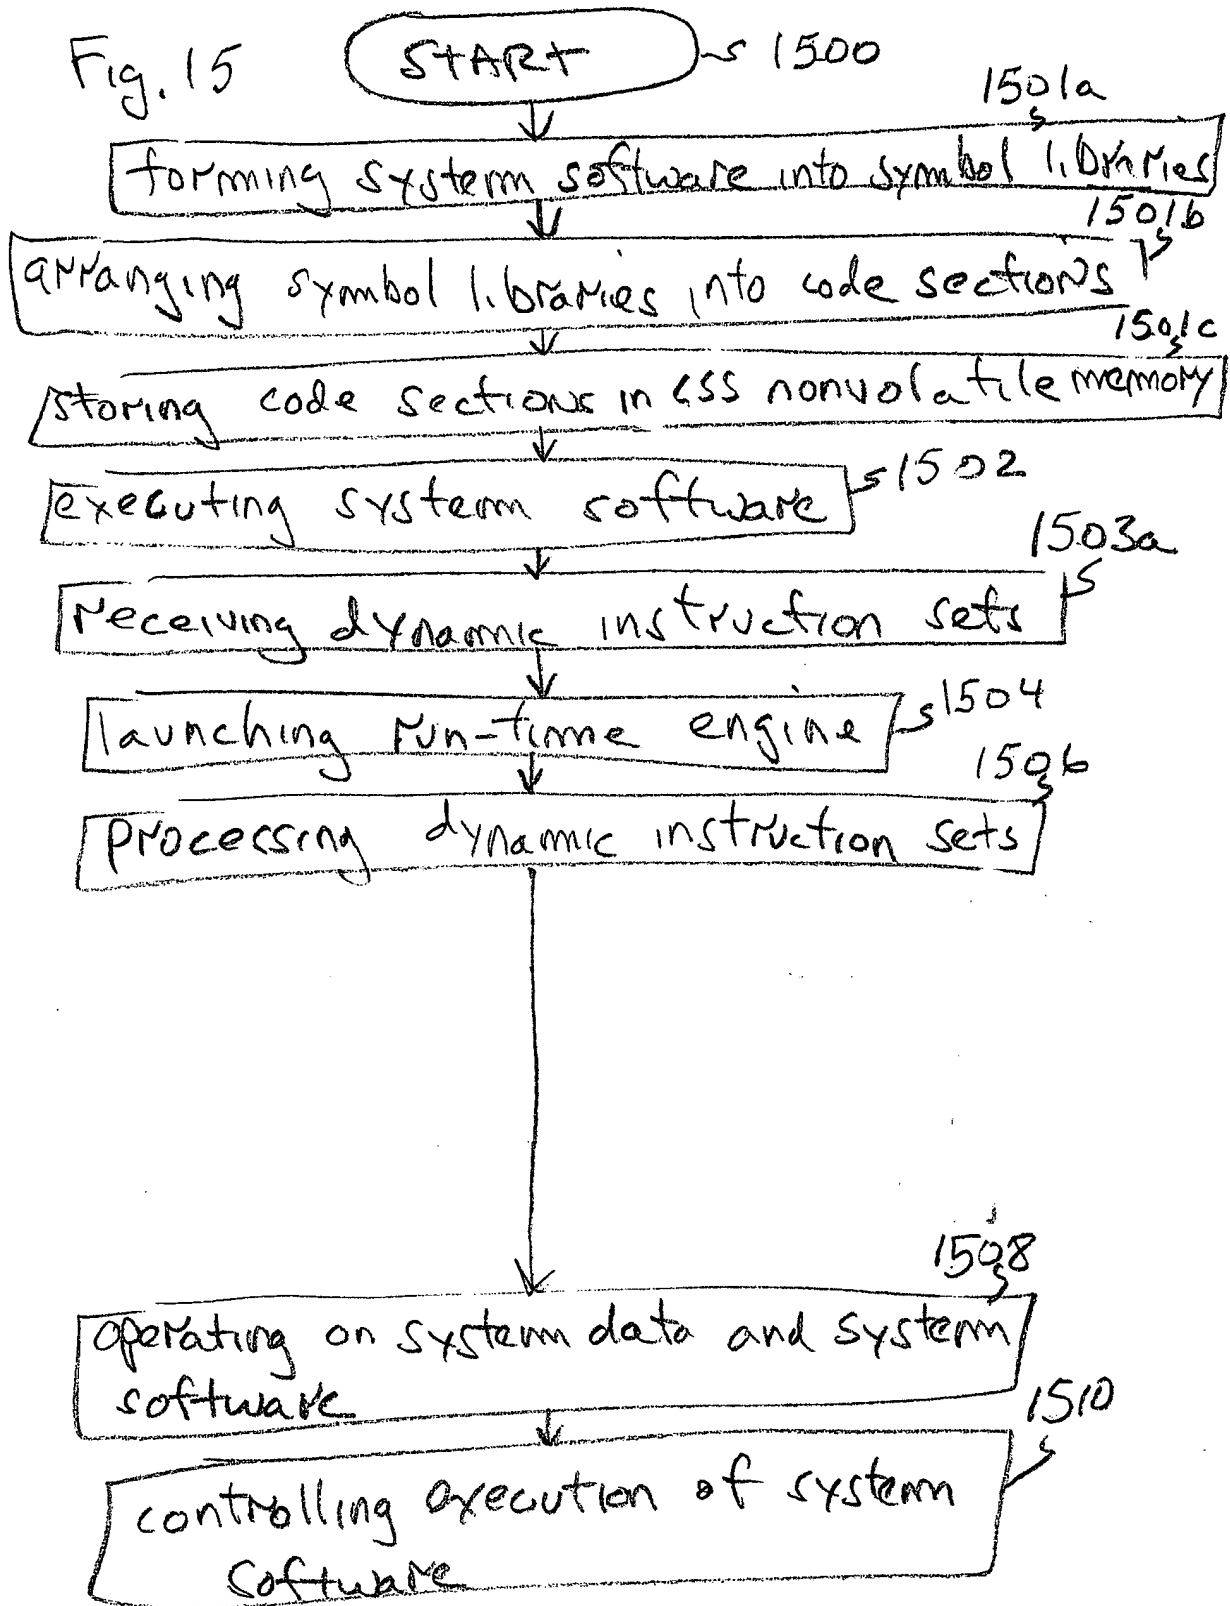 Fig. 15
START
1500
1501a
forming system software into symbol libraries
1501b
arranging symbol libraries into code sections
1501c
storing code sections in CSS nonvolatile memory
executing system software
1502
1503a
receiving dynamic instruction sets
launching run-time engine
1504
1506
processing dynamic instruction sets
1508
operating on system data and system
software
1510
controlling execution of system
software